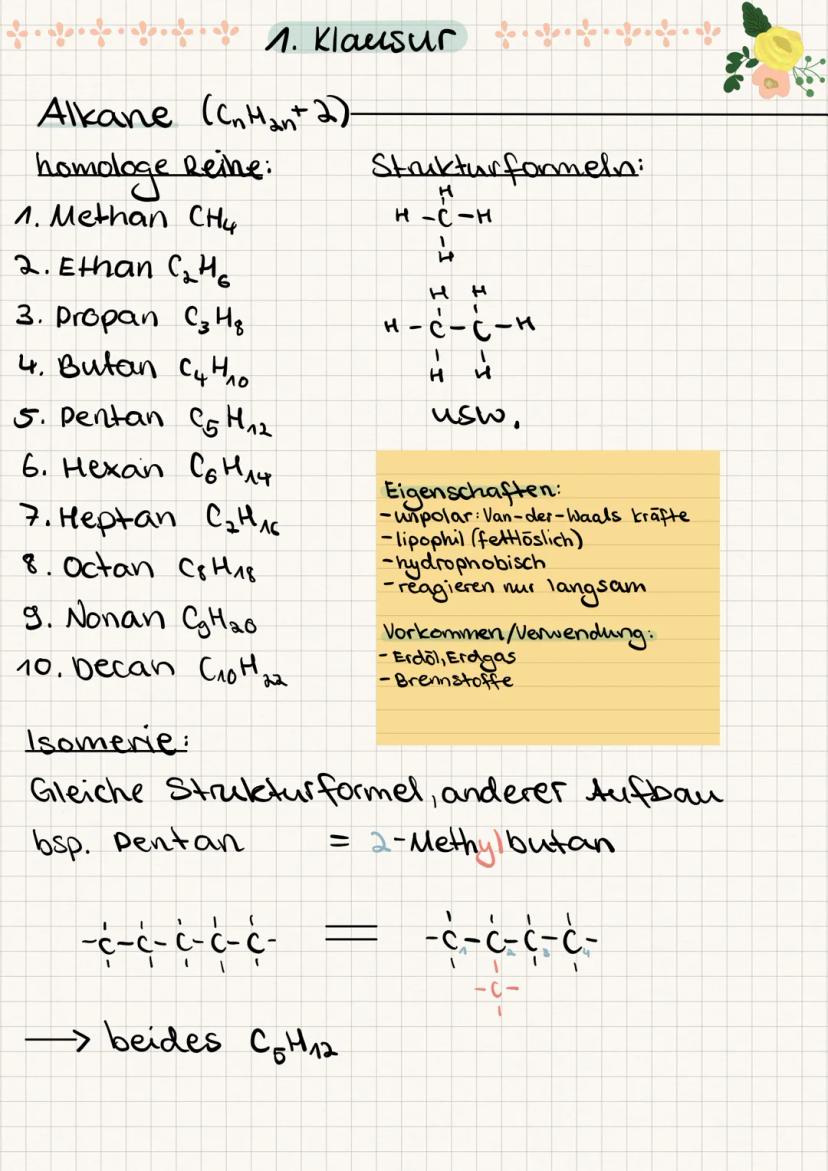 1. Klausur
Alkane (CₙH₂ₙ+2)
homologe Reihe:
1. Methan CH₄
2. Ethan C₂H₆
3. Propan C₃H₈
4. Butan C₄H₁₀
5. Pentan C₅H₁₂
6. Hexan C₆H₁₄
7. Heptan C₂H₁₆
8. Octan C₈H₁₈
9. Nonan C₉H₂₀
10. Decan C₁₀H₂₂
Strukturformeln:
H
H - C - H
H
H H
H - C - C - H
H H
usw.
Eigenschaften:
- unpolar: Van-der-Waals kräfte
- lipophil (fettlöslich)
- hydrophobisch
- reagieren nur langsam
Vorkommen/Verwendung:
- Erdöl, Erdgas
- Brennstoffe
Isomerie:
Gleiche Strukturformel, anderer Aufbau
bsp. Pentan = 2-Methylbutan
-C-C-C-C-C- = -C₁-C₂-C₃-C₄-
-C-
→ beides C₅H₁₂